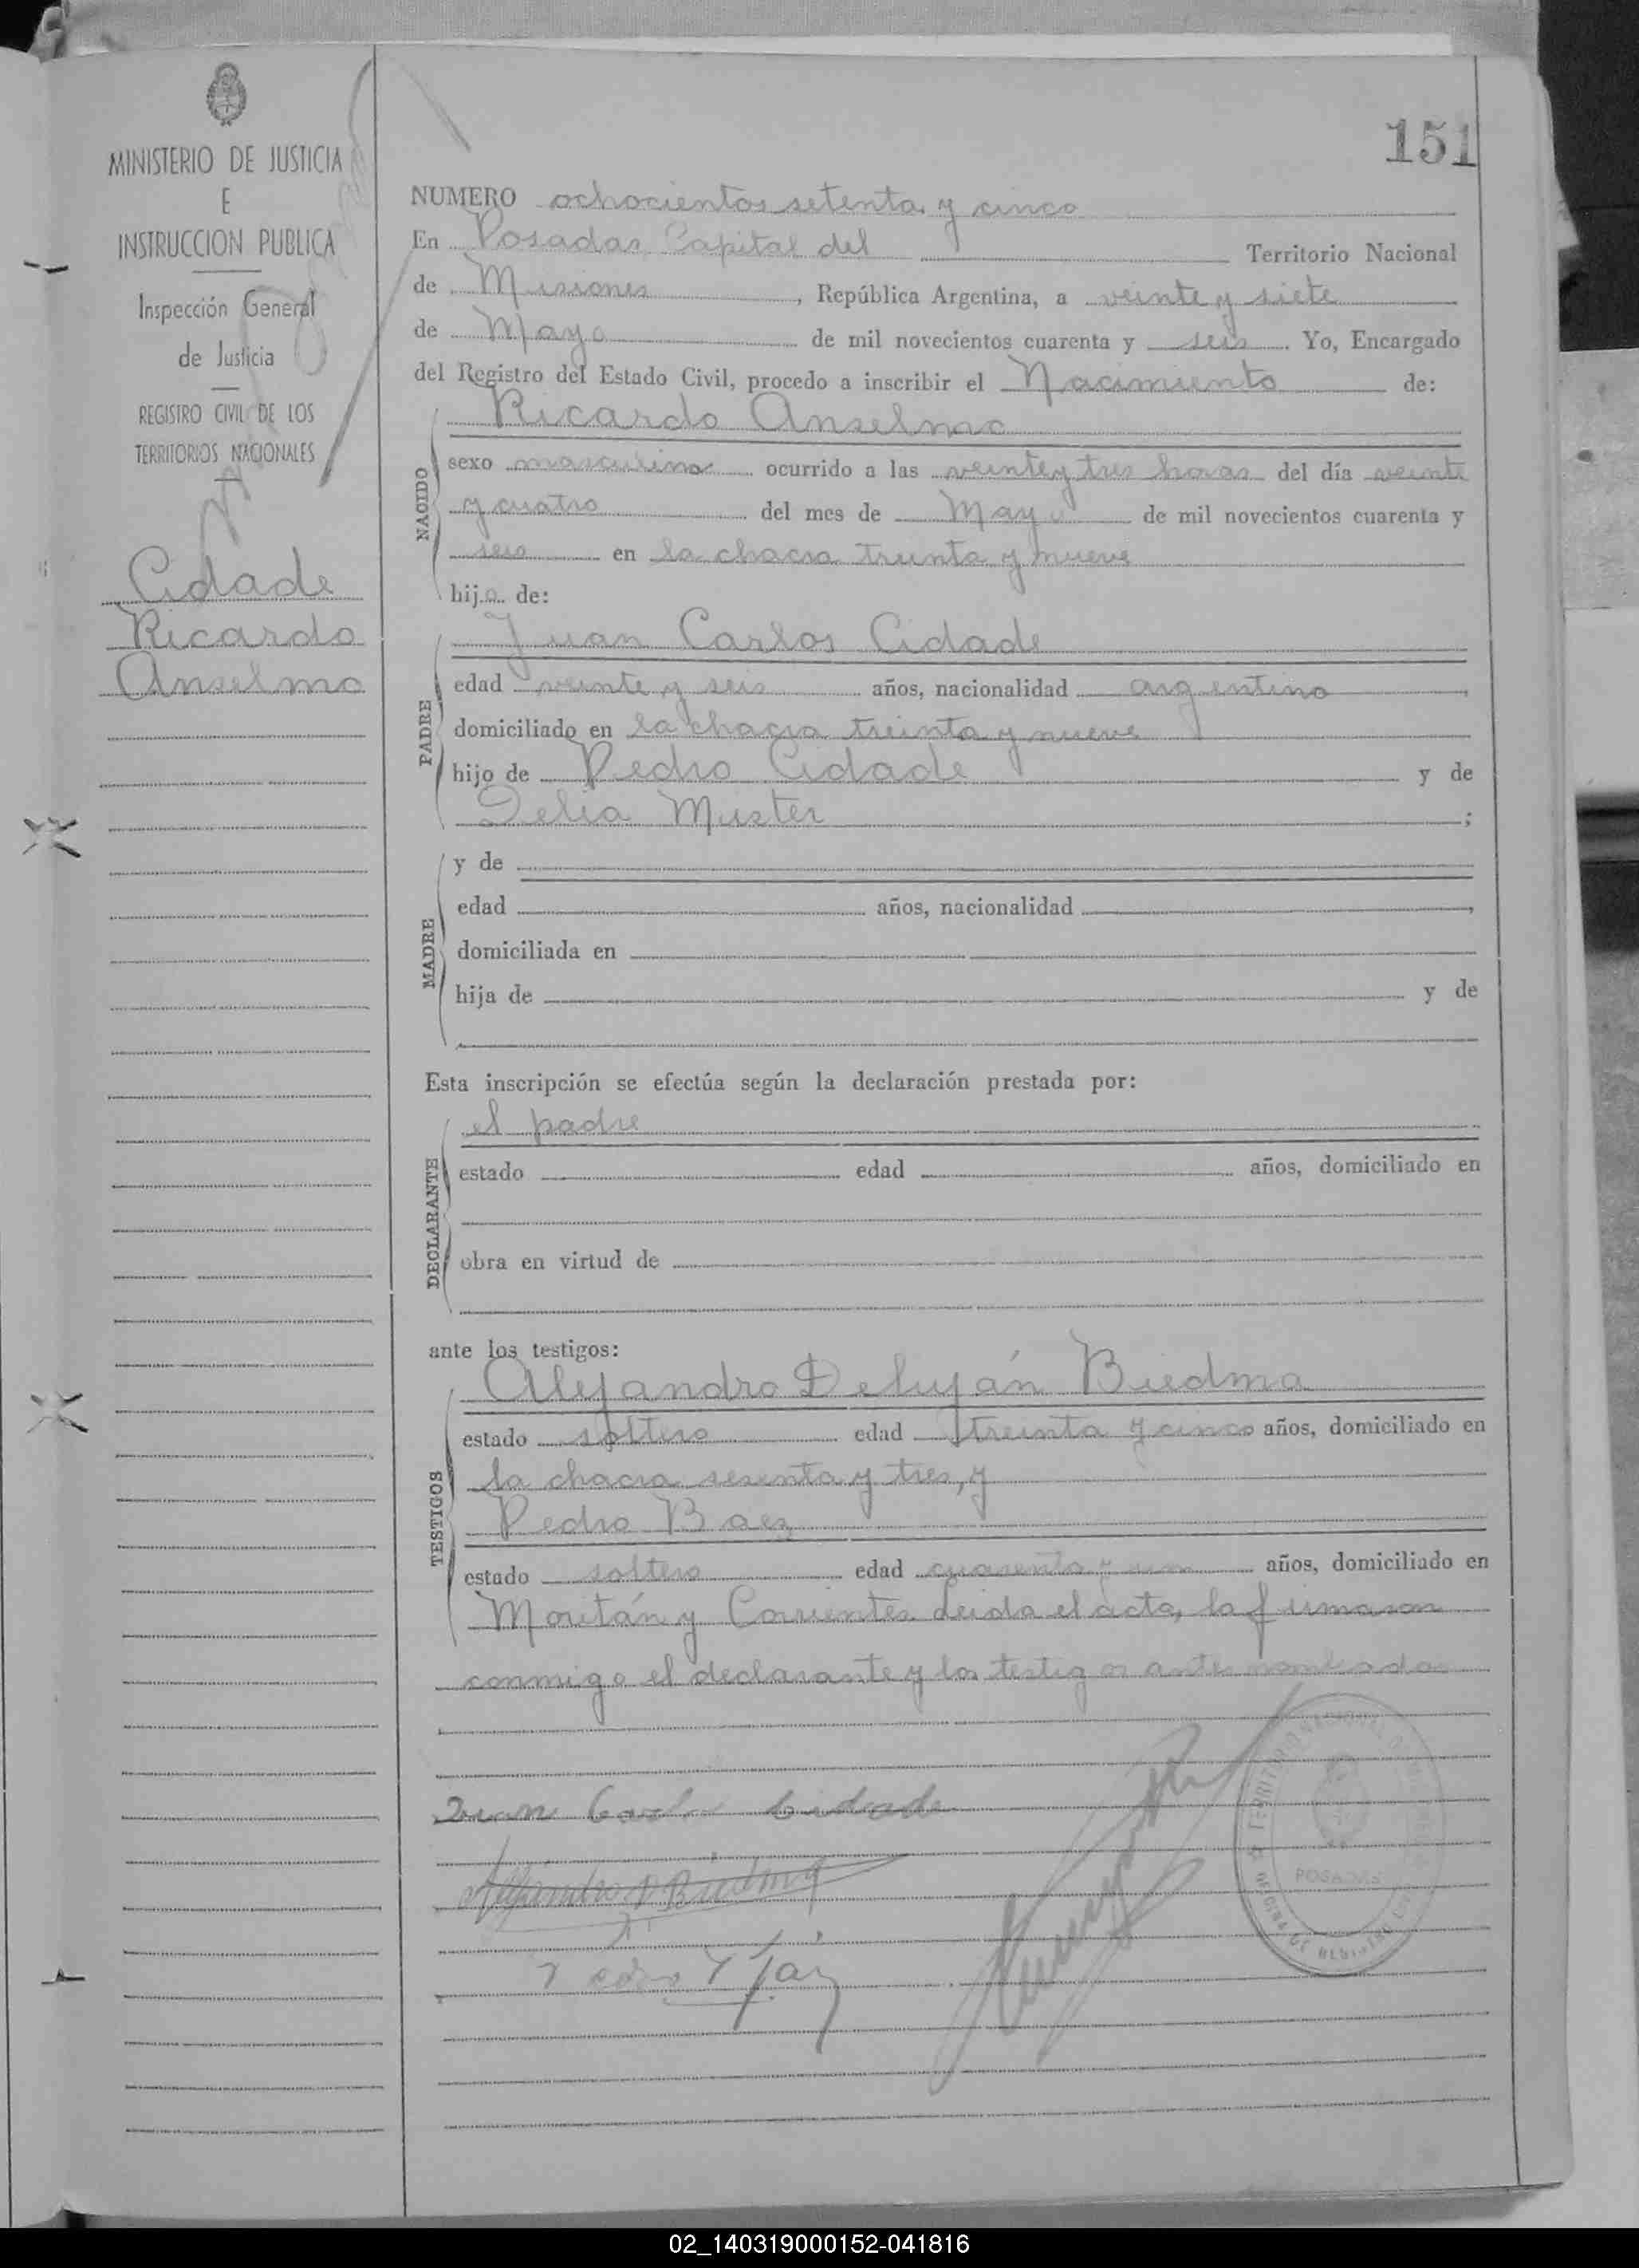 151
MINISTERIO DE JUSTICIA
E
INSTRUCCION PUBLICA
Inspección General
de Justicia
REGISTRO CIVIL DE LOS
TERRITORIOS NACIONALES
Cidade
Ricardo
Anselmo
NUMERO ochocientos setenta y cinco
En Posadas Capital del Territorio Nacional
de Misiones, República Argentina, a veinte y siete
de Mayo de mil novecientos cuarenta y seis. Yo, Encargado
del Registro del Estado Civil, procedo a inscribir el Nacimiento de:
NACIDO
Ricardo Anselmo
sexo masculino ocurrido a las veinte y tres horas del día veinte
y cuatro del mes de Mayo de mil novecientos cuarenta y
seis en la chacra treinta y nueve
hijo de:
PADRE
Juan Carlos Cidade
edad veinte y seis años, nacionalidad argentino,
domiciliado en la chacra treinta y nueve
hijo de Pedro Cidade y de
Delia Muster;
MADRE
y de
edad años, nacionalidad,
domiciliada en
hija de y de
Esta inscripción se efectúa según la declaración prestada por:
DECLARANTE
el padre
estado edad años, domiciliado en
obra en virtud de
ante los testigos:
TESTIGOS
Alejandro Deluján Biedma
estado soltero edad treinta y cinco años, domiciliado en
la chacra sesenta y tres, y
Pedro Baez
estado soltero edad cuarenta y un años, domiciliado en
y Corrientes. Leida el acta, la firmaron
conmigo el declarante y los testigos antes nombrados
Juan Carlos Cidade
Alejandro D Biedma
Pedro
TERRITORIO NACIONAL
POSADAS
02_140319000152-041816